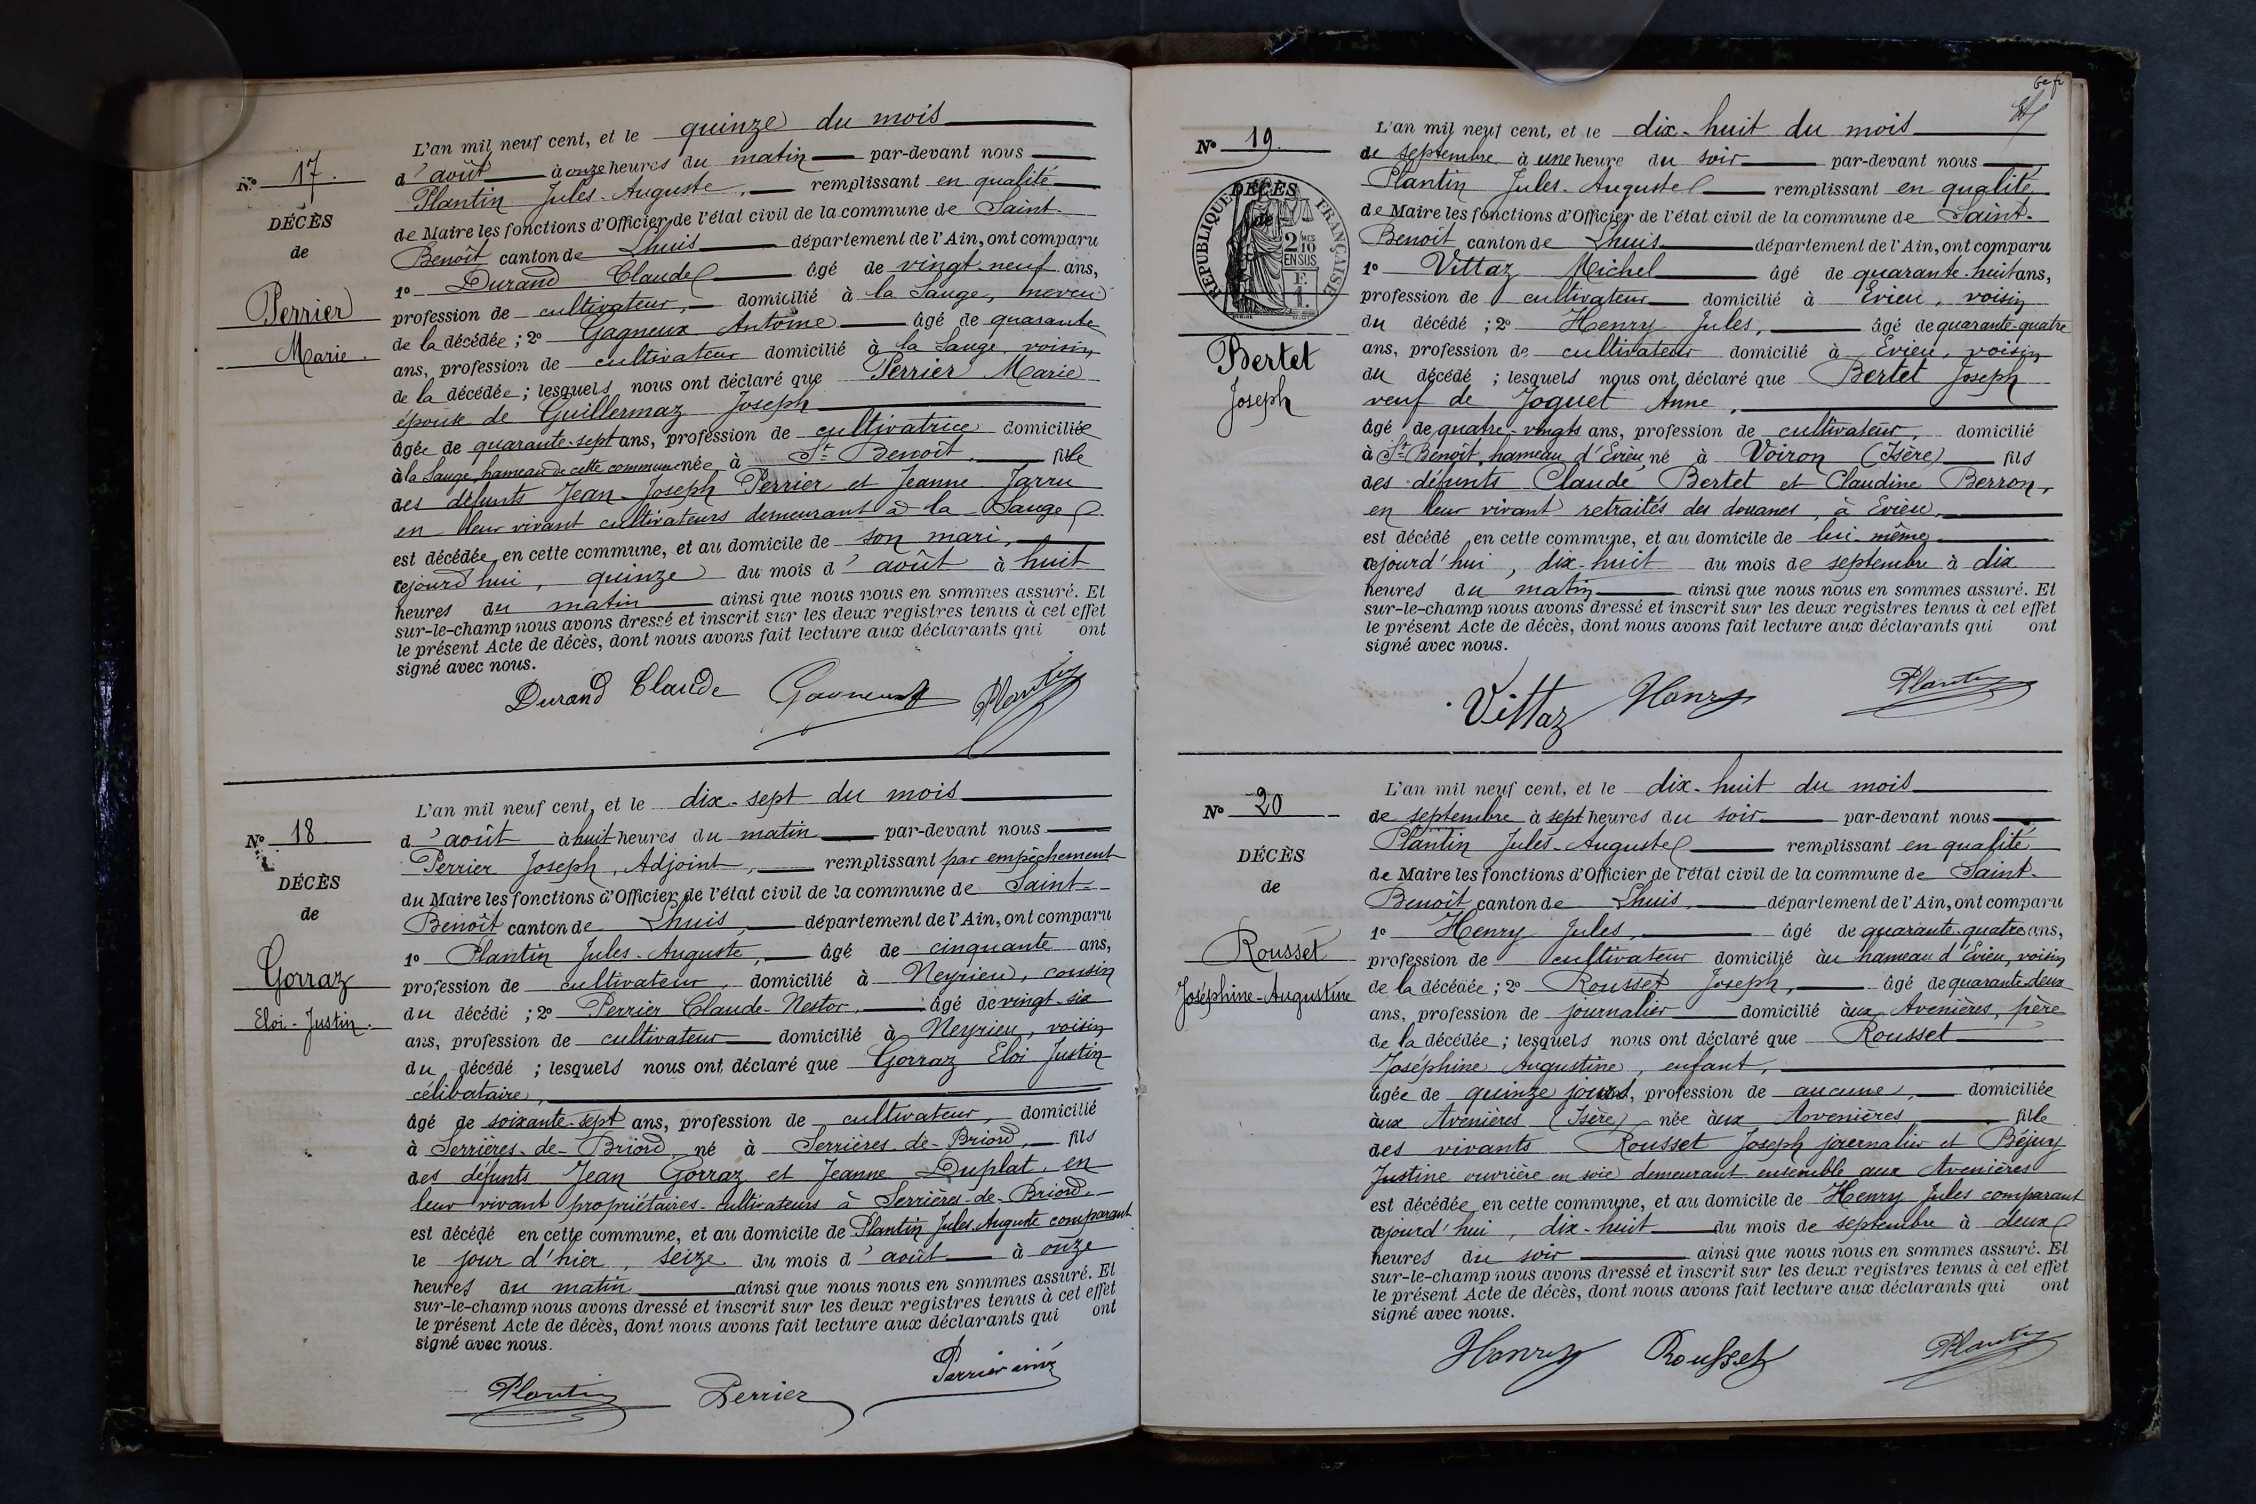 N° 17.
DÉCÈS
de
Perrier
Marie.
L'an mil neuf cent, et le quinze du mois
d'août à onze heures du matin par-devant nous
Plantin Jules-Auguste, remplissant en qualité
de Maire les fonctions d'Officier de l'état civil de la commune de Saint-
Benoît canton de Lhuis département de l'Ain, ont comparu
1° Durand Claude âgé de vingt neuf ans,
profession de cultivateur, domicilié à la Sauge, neveu
de la décédée ; 2° Gagneux Antoine âgé de quarante
ans, profession de cultivateur domicilié à la Sauge, voisin
de la décédée ; lesquels nous ont déclaré que Perrier Marie
épouse de Guillermaz Joseph
âgée de quarante-sept ans, profession de cultivatrice domiciliée
à la Sauge, hameau de cette commune née à St Benoît. fille
des défunts Jean-Joseph Perrier et Jeanne Jarru
en leur vivant cultivateurs demeurant à la Sauge
est décédée en cette commune, et au domicile de son mari,
cejourd'hui, quinze du mois d'août à huit
heures du matin ainsi que nous nous en sommes assuré. Et
sur-le-champ nous avons dressé et inscrit sur les deux registres tenus à cet effet
le présent Acte de décès, dont nous avons fait lecture aux déclarants qui ont
signé avec nous.
Durand Claude Gagneux Plantin
N° 18
DÉCÈS
de
Gorraz
Eloi-Justin.
L'an mil neuf cent, et le dix-sept du mois
d'août à huit heures du matin par-devant nous
Perrier Joseph, Adjoint, remplissant par empêchement
du Maire les fonctions d'Officier de l'état civil de la commune de Saint-
Benoît canton de Lhuis, département de l'Ain, ont comparu
1° Plantin Jules-Auguste, âgé de cinquante ans,
profession de cultivateur, domicilié à Neyrieu, cousin
du décédé ; 2° Perrier Claude-Nestor, âgé de vingt-six
ans, profession de cultivateur domicilié à Neyrieu, voisin
du décédé ; lesquels nous ont déclaré que Gorraz Eloi Justin
célibataire,
âgé de soixante-sept ans, profession de cultivateur, domicilié
à Serrières-de-Briord, né à Serrières-de-Briord, fils
des défunts Jean Gorraz et Jeanne Duplat, en
leur vivant propriétaires-cultivateurs à Serrières-de-Briord.
est décédé en cette commune, et au domicile de Plantin Jules Auguste comparant
le jour d'hier, seize du mois d'août à onze
heures du matin ainsi que nous nous en sommes assuré. Et
sur-le-champ nous avons dressé et inscrit sur les deux registres tenus à cet effet
le présent Acte de décès, dont nous avons fait lecture aux déclarants qui ont
signé avec nous.
Plantin Perrier Perrier ainé
N° 19.
DÉCÈS
de
RÉPUBLIQUE FRANÇAISE
2/10 MES
EN SUS
F.
1.
Bertet
Joseph
L'an mil neuf cent, et le dix-huit du mois
de septembre à une heure du soir par-devant nous
Plantin Jules-Auguste remplissant en qualité
de Maire les fonctions d'Officier de l'état civil de la commune de Saint-
Benoît canton de Lhuis département de l'Ain, ont comparu
1° Vittaz Michel âgé de quarante-huit ans,
profession de cultivateur domicilié à Evieu, voisin
du décédé ; 2° Henry Jules, âgé de quarante-quatre
ans, profession de cultivateur domicilié à Evieu, voisin
du décédé ; lesquels nous ont déclaré que Bertet Joseph
veuf de Joquet Anne,
âgé de quatre-vingts ans, profession de cultivateur, domicilié
à St Benoît, hameau d'Evieu né à Voiron (Isère) fils
des défunts Claude Bertet et Claudine Berron,
en leur vivant retraités des douanes, à Evieu,
est décédé en cette commune, et au domicile de lui-même
cejourd'hui, dix-huit du mois de septembre à dix
heures du matin ainsi que nous nous en sommes assuré. Et
sur-le-champ nous avons dressé et inscrit sur les deux registres tenus à cet effet
le présent Acte de décès, dont nous avons fait lecture aux déclarants qui ont
signé avec nous.
Vittaz Henry Plantin
N° 20
DÉCÈS
de
Rousset
Joséphine-Augustine
L'an mil neuf cent, et le dix-huit du mois
de septembre à sept heures du soir par-devant nous
Plantin Jules-Auguste remplissant en qualité
de Maire les fonctions d'Officier de l'état civil de la commune de Saint-
Benoît canton de Lhuis, département de l'Ain, ont comparu
1° Henry Jules, âgé de quarante-quatre ans,
profession de cultivateur domicilié au hameau d'Evieu, voisin
de la décédée ; 2° Rousset Joseph, âgé de quarante-deux
ans, profession de journalier domicilié aux Avenières, père
de la décédée ; lesquels nous ont déclaré que Rousset
Joséphine Augustine, enfant,
âgée de quinze jours, profession de aucune, domiciliée
aux Avenières (Isère) née aux Avenières fille
des vivants Rousset Joseph journalier et Béjuy
Justine ouvrière en soie demeurant ensemble aux Avenières
est décédée en cette commune, et au domicile de Henry Jules comparant
cejourd'hui, dix-huit du mois de septembre à deux
heures du soir ainsi que nous nous en sommes assuré. Et
sur-le-champ nous avons dressé et inscrit sur les deux registres tenus à cet effet
le présent Acte de décès, dont nous avons fait lecture aux déclarants qui ont
signé avec nous.
Henry Rousset Plantin